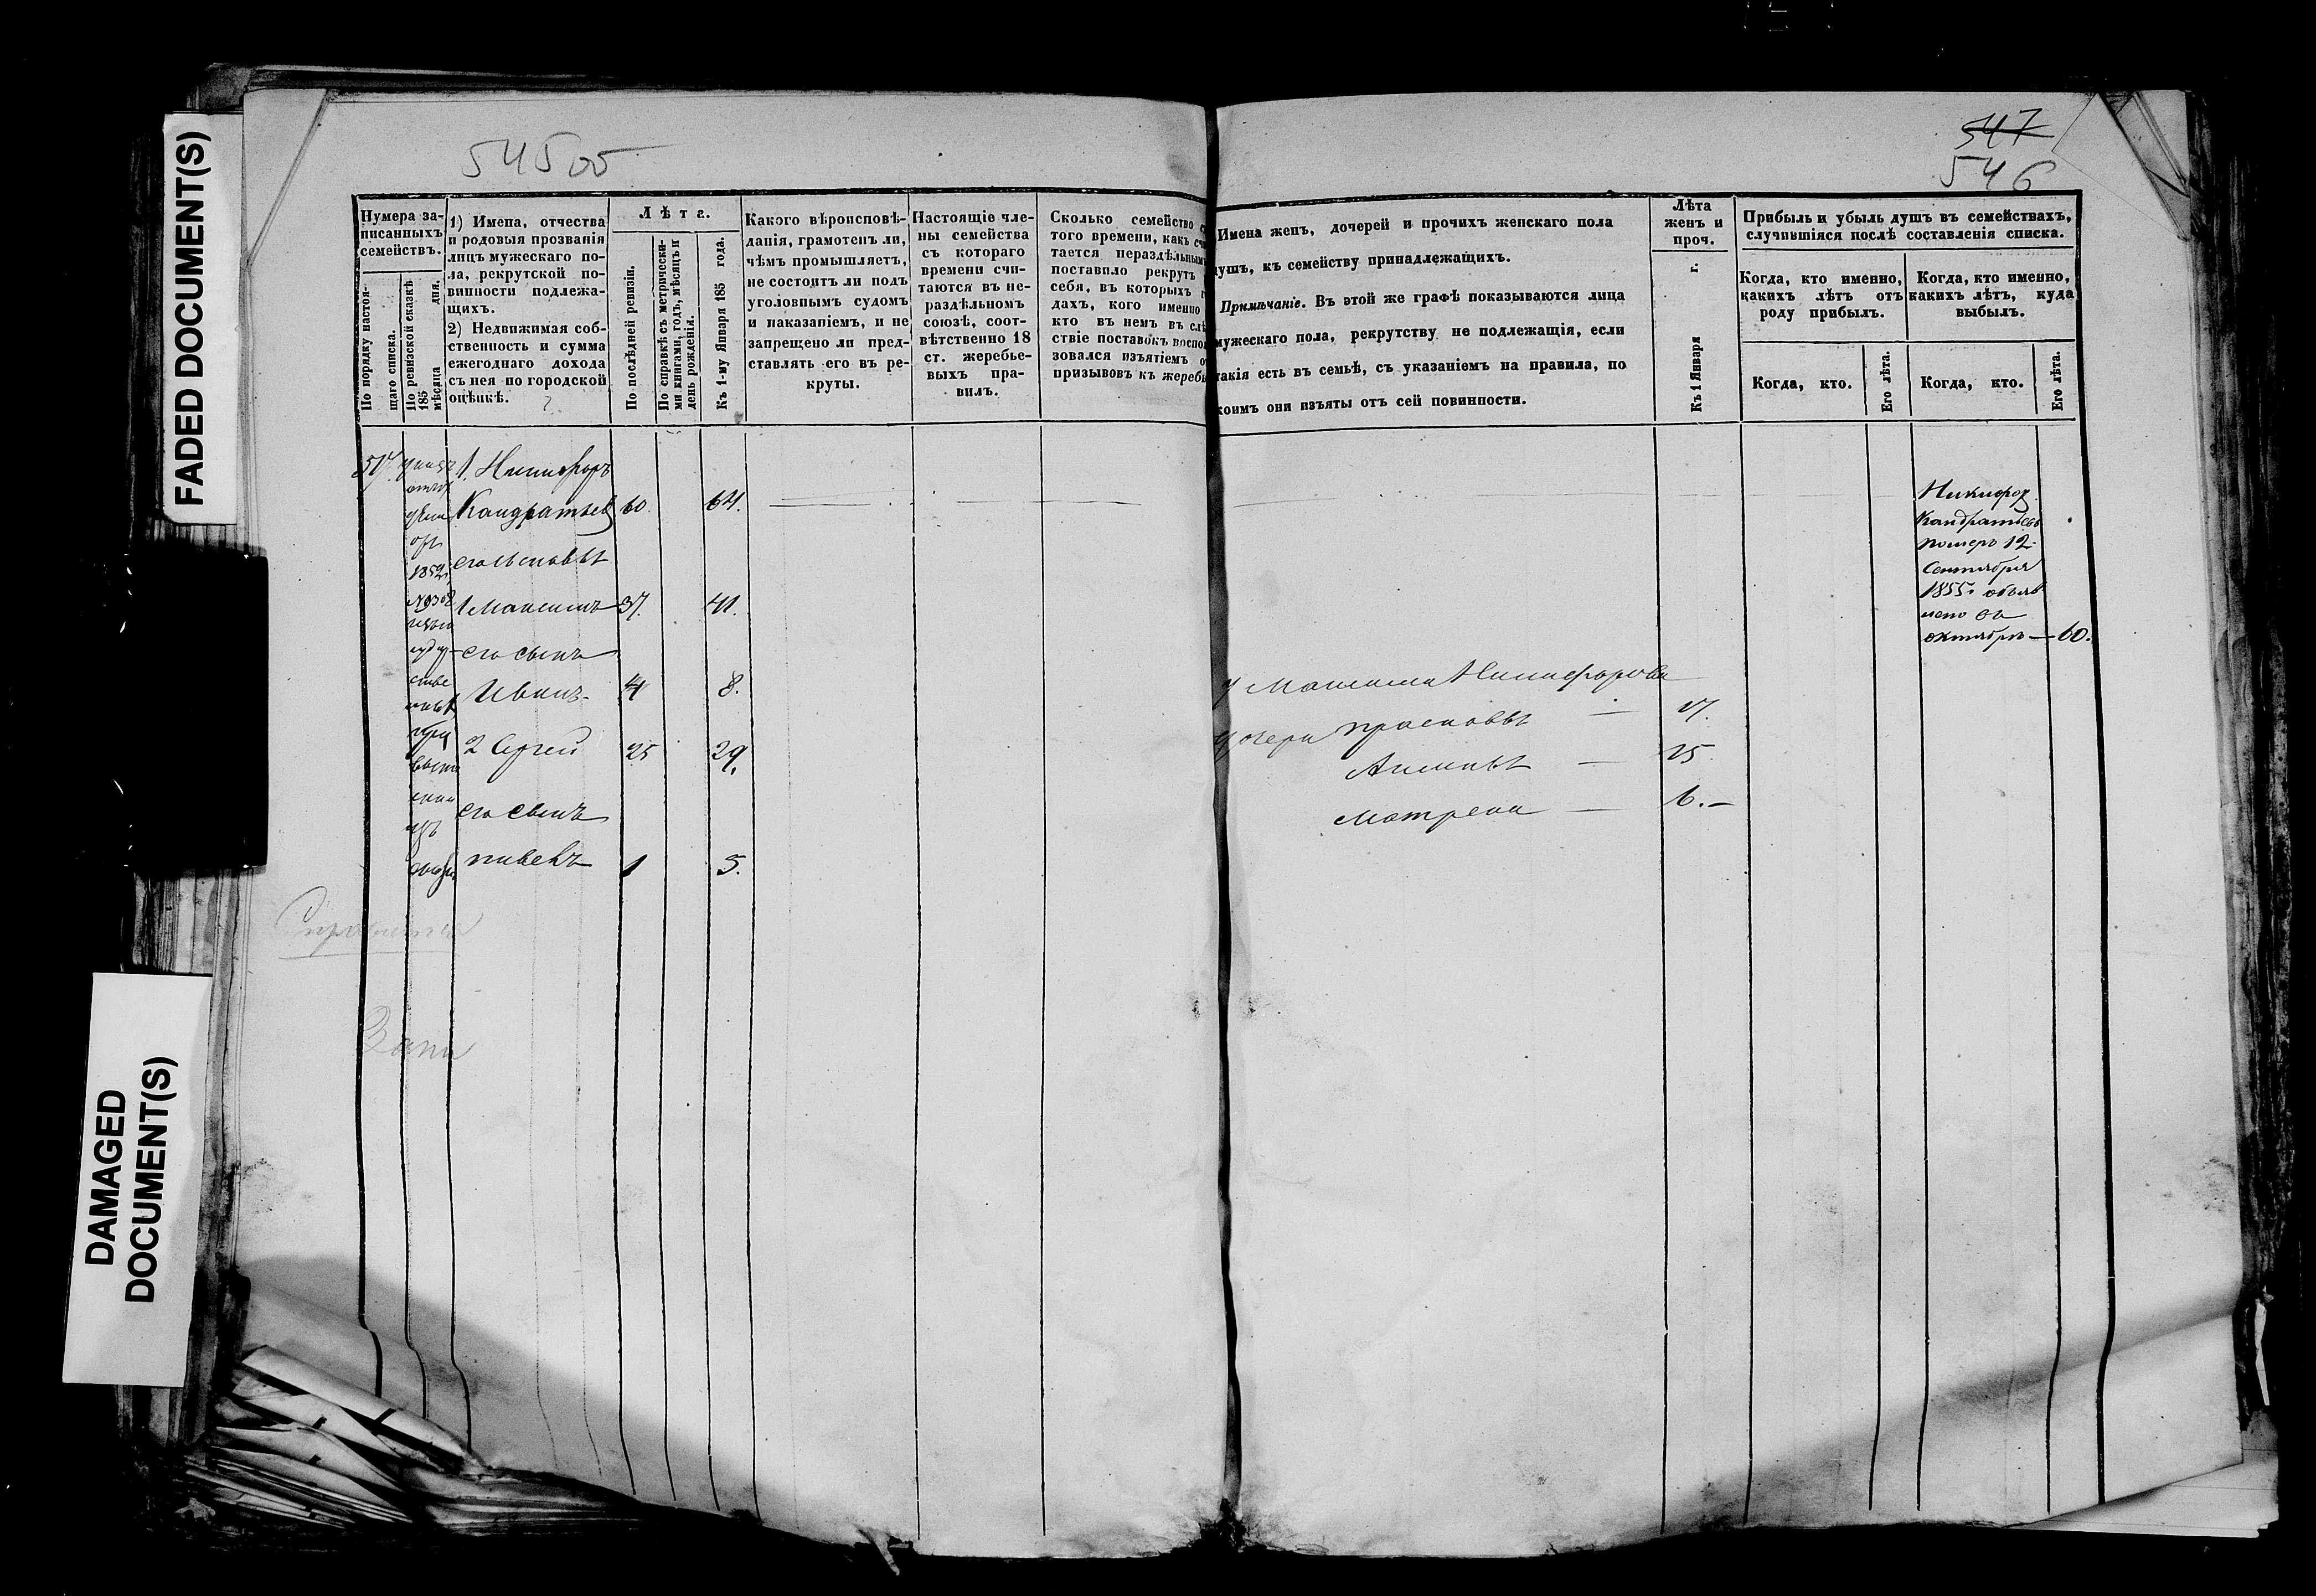 FADED DOCUMENT(S)
DAMAGED
DOCUMENT(S)
545 об
547
546
Нумера за-
писанныхъ
семействъ.
По порядку настоя-
щаго списка.
По ревизской сказкѣ
185 мѣсяца дня.
1) Имена, отчества
и родовыя прозванія
лицъ мужескаго по-
ла, рекрутской по-
винности подлежа-
щихъ.
2) Недвижимая соб-
ственность и сумма
ежегоднаго дохода
съ нея по городской
оцѣнкѣ.
Лѣта.
По послѣдней ревизіи.
По справкѣ съ метрически-
ми книгами, годъ, мѣсяцъ и
день рожденія.
Къ 1-му Января 185 года.
Какого вѣроисповѣ-
данія, грамотенъ ли,
чѣмъ промышляетъ,
не состоитъ ли подъ
уголовнымъ судомъ
и наказаніемъ, и не
запрещено ли пред-
ставлять его въ ре-
круты.
Настоящіе чле-
ны семейства
съ котораго
времени счи-
таются въ не-
раздѣльномъ
союзѣ, соот-
вѣтственно 18
ст. жеребье-
выхъ пра-
вилъ.
Сколько семейство
того времени, какъ
тается нераздѣльнымъ
поставило рекрутъ
себя, въ которыхъ
дахъ, кого именно
кто въ немъ въ
ствіе поставокъ
зовался изъятіемъ
призывовъ къ
Имена женъ, дочерей и прочихъ женскаго пола
душъ, къ семейству принадлежащихъ.
Примѣчаніе. Въ этой же графѣ показываются лица
мужескаго пола, рекрутству не подлежащія, если
такія есть въ семьѣ, съ указаніемъ на правила, по
коимъ они изъяты отъ сей повинности.
Лѣта
женъ и
проч.
Къ 1 Января г.
Прибыль и убыль душъ въ семействахъ,
случившіяся послѣ составленія списка.
Когда, кто именно,
какихъ лѣтъ отъ
роду прибылъ.
Когда, кто именно,
какихъ лѣтъ, куда
выбылъ.
Когда, кто.
Его лѣта.
Когда, кто.
Его лѣта.
1. Никифоръ
Кандратьев 60. 64.
его сыновья
1 Максимъ 37. 41.
его сынъ
Иванъ 4 8.
2 Сергей 25 29.
его сынъ
1 5.
1852
у Максима Никифорова
дочери Прасковья — 17.
15.
Матрена — 6. —
Никифор
Кандратьевъ
померъ 12
Сентября
1855 объяв
лено въ
октябре — 60.